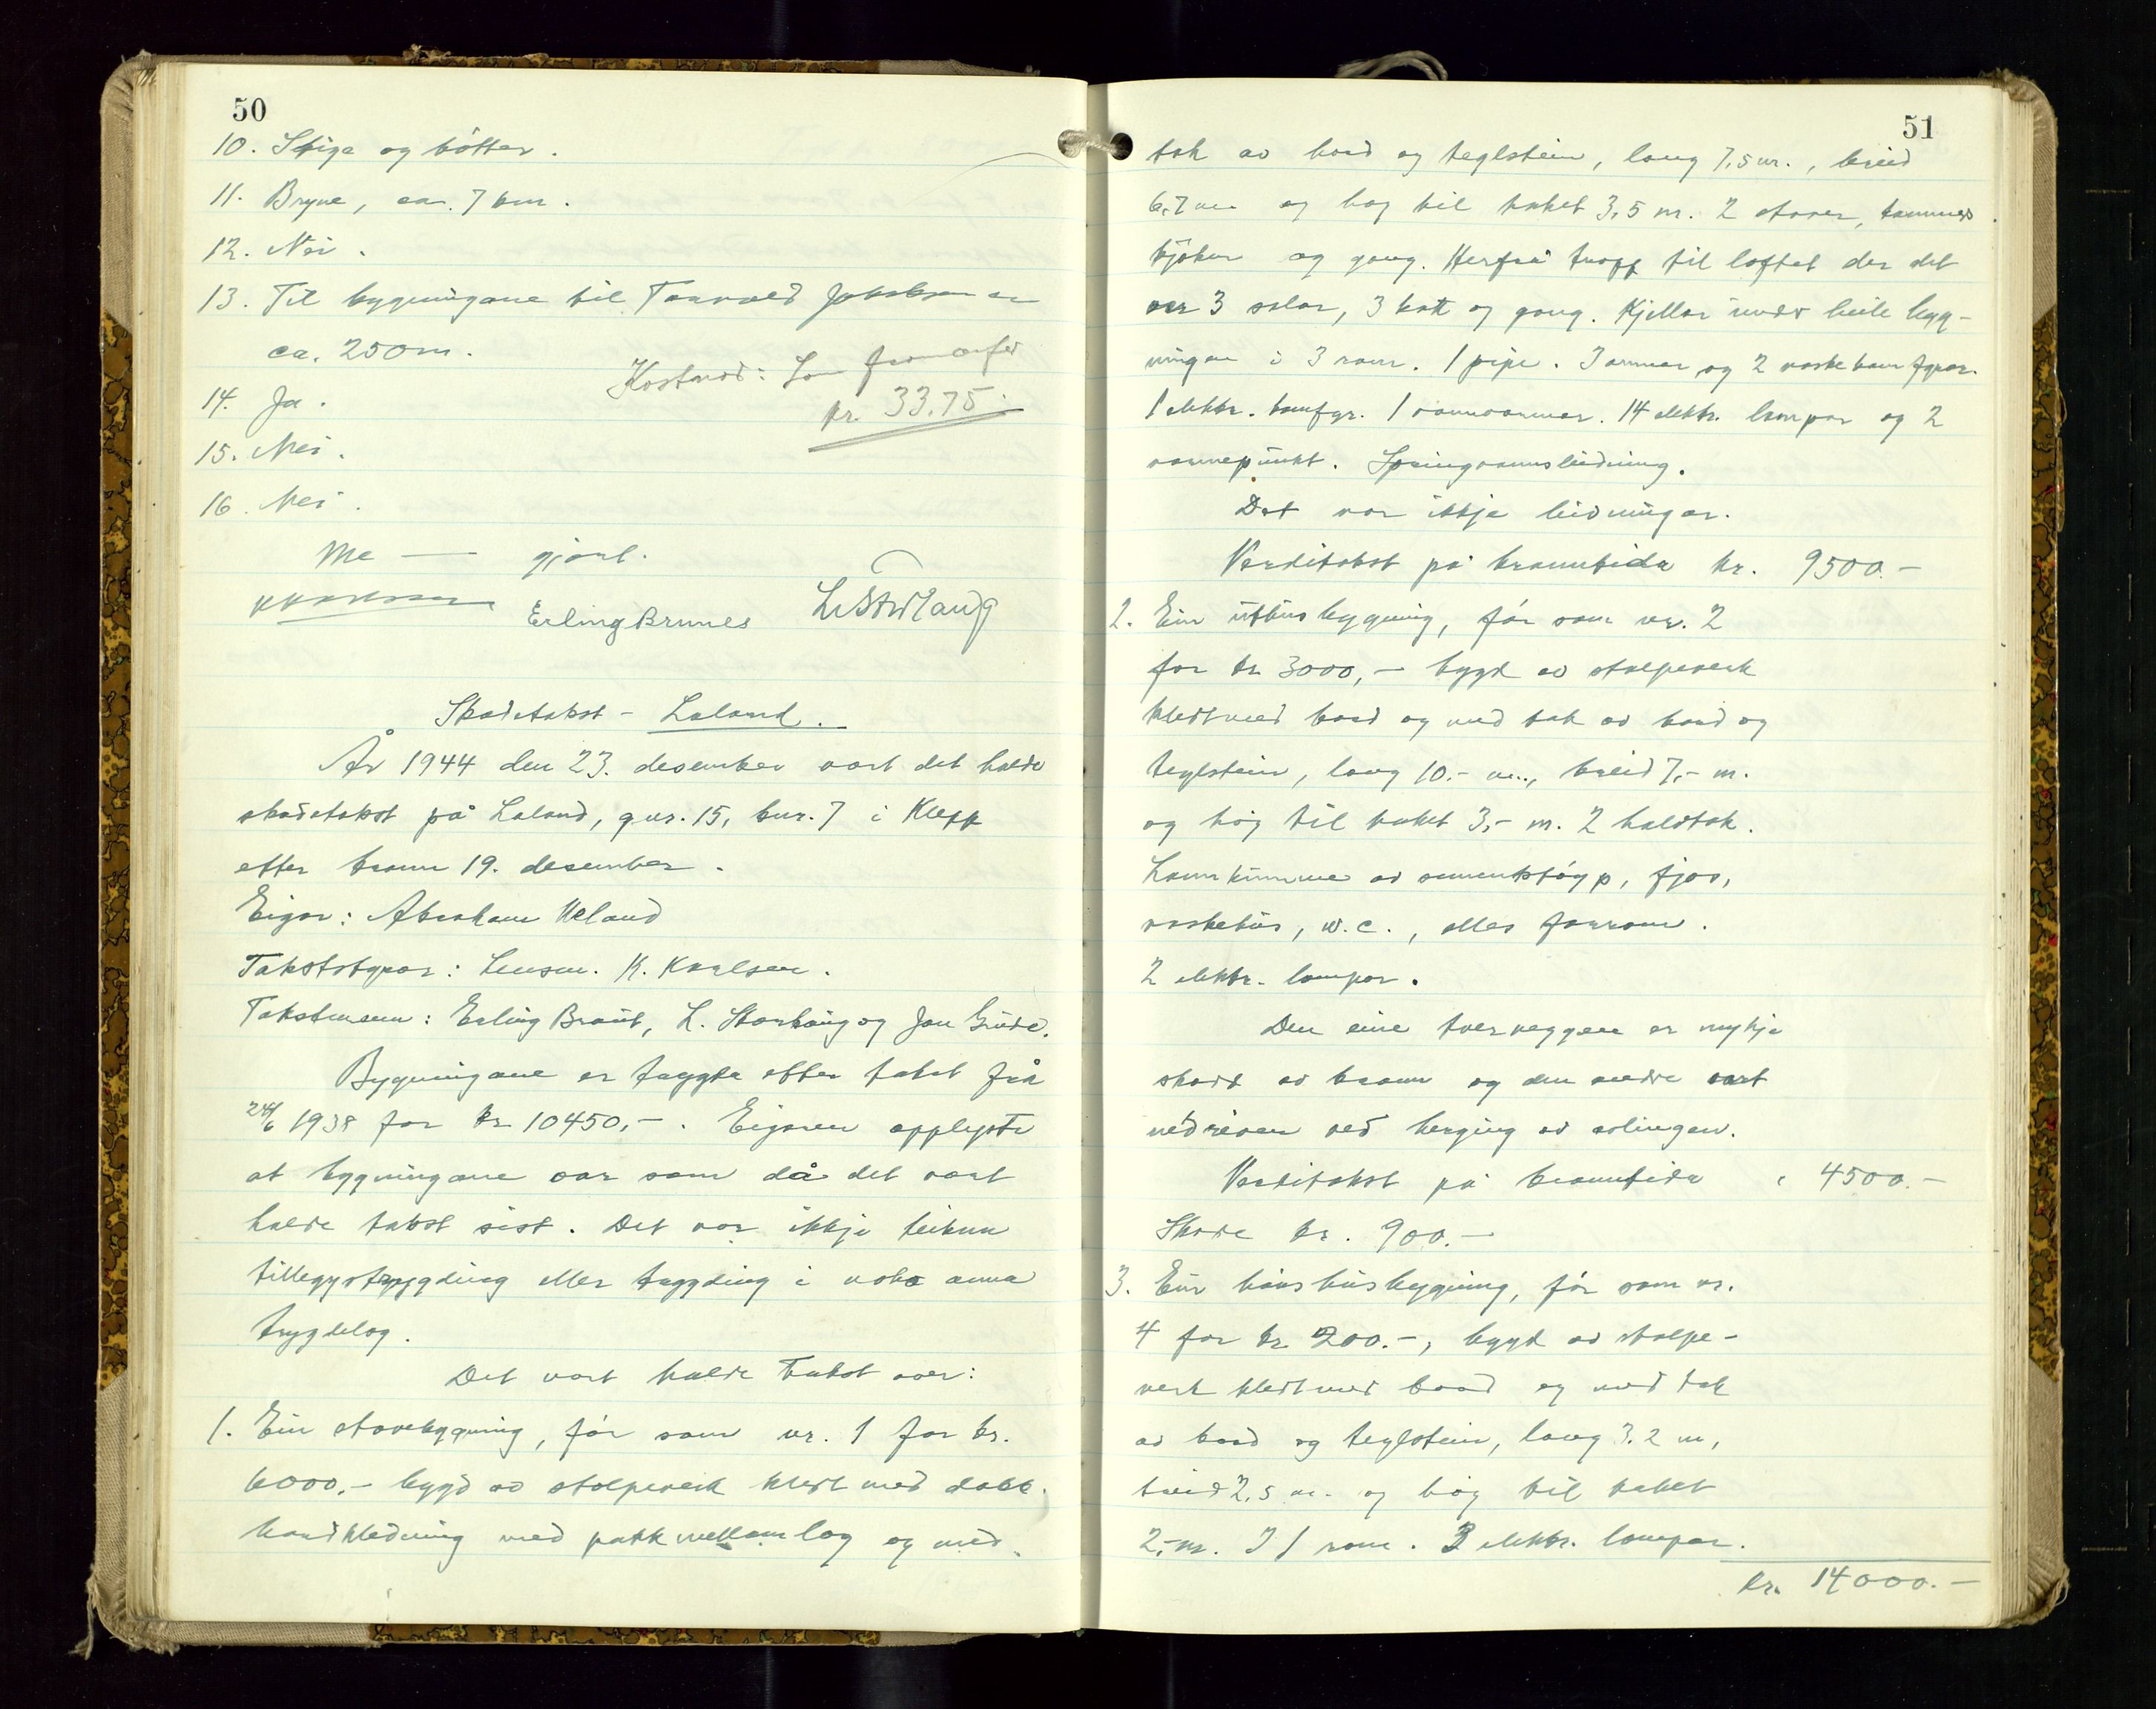 50
10. Stige og bötter.
11. Bryne, ca. 7 km.
12. Nei.
13. Til bygningane til Torvald Jakobsen er
ca. 250 m.
Kostnad: Som framanfor
14. Ja.
kr. 33.75
15. Nei.
16. Nei.
Me — gjort.
KKarlsen
Erling Braut LStorhaug
Skadetakst - Laland.
År 1944 den 23. desember vart det halde
skadetakst på Laland, gnr. 15, bnr. 7 i Klepp
etter brann 19. desember.
Eigar: Abraham Ueland
Takststyrar: Lensm. K. Karlsen.
Takstmenn: Erling Braut, L. Storhaug og Jon Grude.
Bygningane er trygda etter takst frå
24/6 1938 for kr 10450,-. Eigaren opplyste
at bygningane var som då det vart
halde takst sist. Det var ikkje teikna
tilleggstrygding eller trygding i noko anna
trygdelag.
Det vart halde takst over:
1. Ein stovebygning, för som nr. 1 for kr.
6000.- bygd av stolpeverk kledt med dobb.
bordkledning med papp mellom lag og med
51
tak av bord og teglstein, lang 7,5 m., breid
6,7 m og høg til taket 3,5 m. 2 stover, kammers
kjøken og gang. Herfrå tropp til loftet der det
var 3 salar, 3 kott og gang. Kjellar under heile byg-
ningen i 3 rom. 1 pipe. 3 omnar og 2 vaskekomfyrar.
1 elektr. komfyr. 1 vannvarmer. 14 elektr. lampor og 2
varmepunkt. Springvannsleidning.
Det var ikkje leidningar.
Verditakst på branntida kr. 9500.-
2. Ein uthusbygning, för som nr. 2
for kr 3000,- bygd av stolpeverk
kledt med bord og med tak av bord og
teglstein, lang 10.- m., breid 7,- m.
og høg til taket 3,- m. 2 halvtak.
Landkumme av sementstøyp, fjos,
vaskehus, w.c., elles forrom.
2 elektr. lampor.
Den eine tverveggen er mykje
skadd av brann og den andre vart
nedreven ved berging av avlingen.
Verditakst på branntida " 4500.-
Skade kr. 900.-
3. Ein hönshusbygning, för som nr.
4 for kr 200.-, bygd av stolpe-
verk kledt med bord og med tak
av bord og teglstein, lang 3.2 m,
breid 2,5 m. og høg til taket
2,- m. I 1 rom. 3 elektr. lampor.
kr. 14000.-